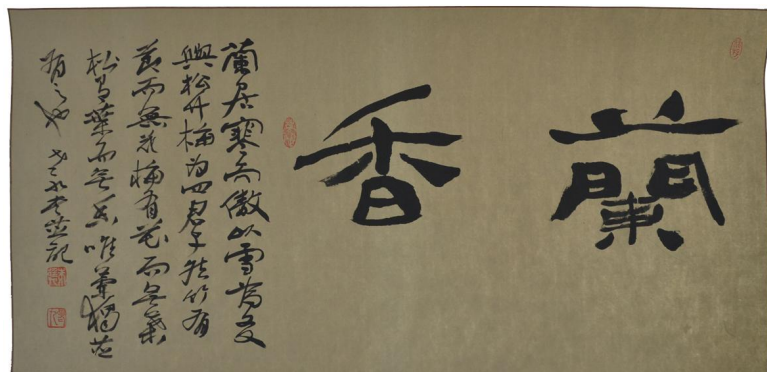 蘭香
蘭居寒傲以雪為友
與松竹梅为四君子然竹有
節而無花梅有花而無葉
松有葉而無香唯蘭獨並
有之也